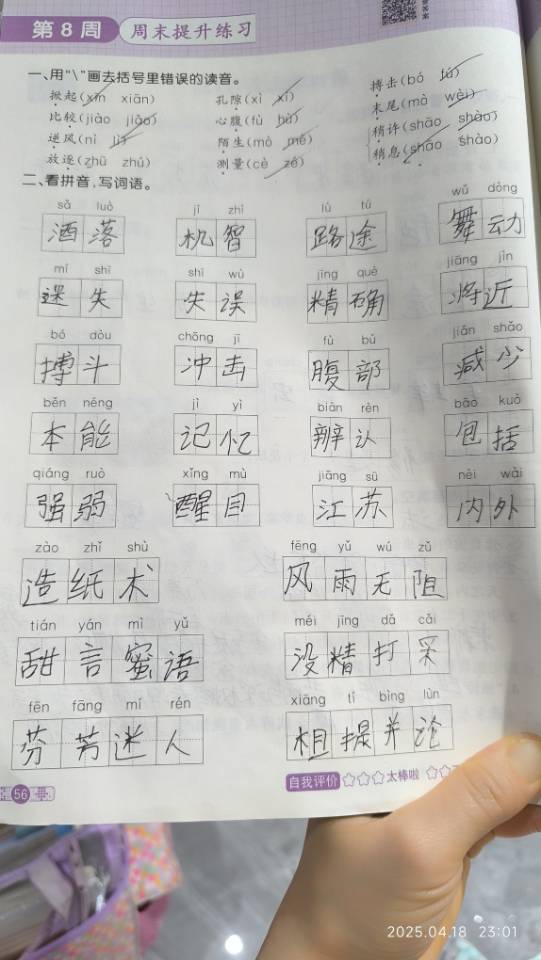 第8周 周末提升练习
一、用“\”画去括号里错误的读音。
掀起(xīn xiān) 孔隙(xì xī) 搏击(bó tú)
比较(jiào jiǎo) 心腹(fù hù) 末尾(mò wèi)
逆风(nì lì) 陌生(mò mé) 稍许(shāo shào)
放逐(zhū zhú) 测量(cè zé) 稍息(shāo shào)
二、看拼音，写词语。
sǎ luò jī zhì lù tú wǔ dòng
洒落 机智 路途 舞动
mí shī shī wù jīng què jiāng jìn
迷失 失误 精确 将近
bó dòu chōng jī fù bù jiǎn shǎo
搏斗 冲击 腹部 减少
běn néng jì yì biàn rèn bāo kuò
本能 记忆 辨认 包括
qiáng ruò xǐng mù jiāng sū nèi wài
强弱 醒目 江苏 内外
zào zhǐ shù fēng yǔ wú zǔ
造纸术 风雨无阻
tián yán mì yǔ méi jīng dǎ cǎi
甜言蜜语 没精打采
fēn fāng mí rén xiāng tí bìng lùn
芬芳迷人 相提并论
自我评价 ☆☆☆太棒啦 ☆☆
56
2025.04.18 23:01